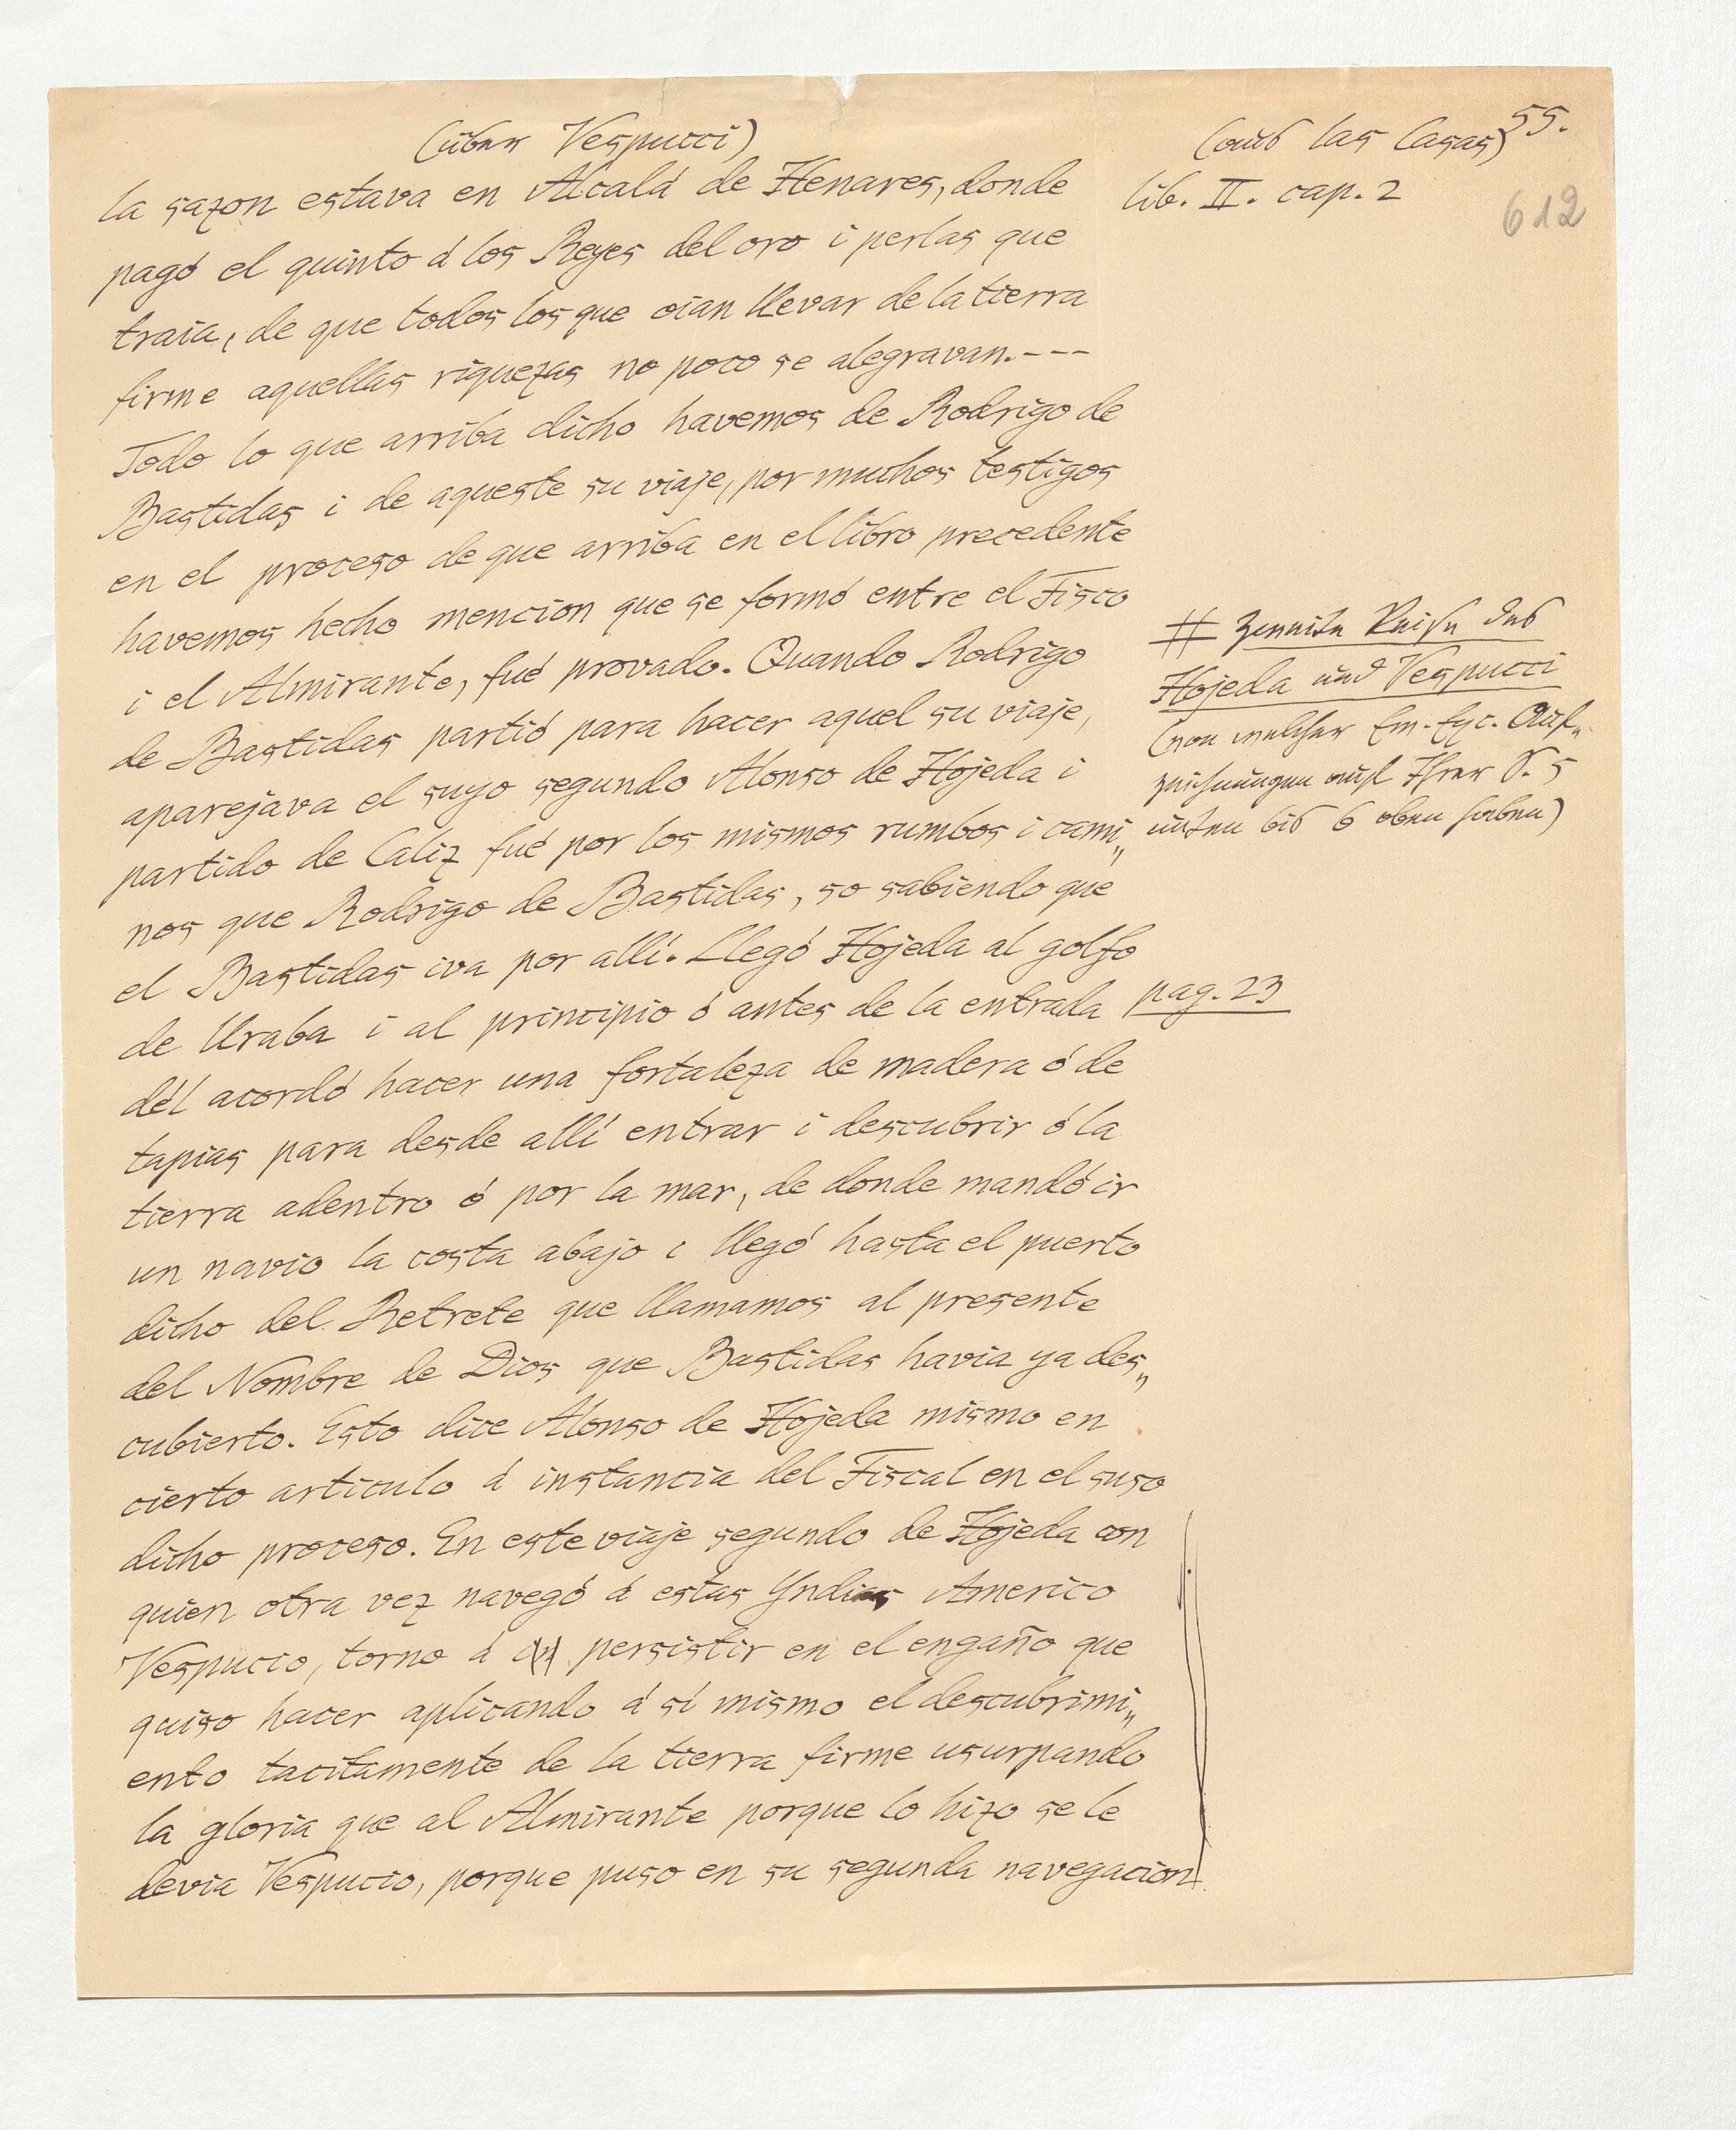 (über Vespucci)
(aus las Casas) 55.
lib. II. cap. 2
612
la sazon estava en Alcalá de Henares, donde
pagó el quinto á los Reyes del oro i perlas que
traia, de que todos los que oian llevar de la tierra
firme aquellas riquezas no poco se alegravan.---
Todo lo que arriba dicho havemos de Rodrigo de
Bastidas i de aqueste su viaje, por muchos testigos
en el proceso de que arriba en el libro precedente
havemos hecho mencion que se formó entre el Fisco
i el Almirante, fué provado. Quando Rodrigo
de Bastidas partió para hacer aquel su viaje,
aparejava el suyo segundo Alonso de Hojeda i
partido de Caliz fué por los mismos rumbos i cami„
nos que Rodrigo de Bastidas, so sabiendo que
el Bastidas iva por allí. Llegó Hojeda al golfo
de Uraba i al principio ó antes de la entrada
dél acordó hacer una fortaleza de madera ó de
tapias para desde allí entrar i descubrir ó la
tierra adentro ó por la mar, de donde mandó ir
un navio la costa abajo i llegó hasta el puerto
dicho del Retrete que llamamos al presente
del Nombre de Dios que Bastidas havia ya des„
cubierto. Esto dice Alonso de Hojeda mismo en
cierto articulo á instancia del Fiscal en el suso
dicho proceso. En este viaje segundo de Hojeda con
quien otra vez navegó á estas Yndias Americo
Vespucio, torno á persistir en el engaño que
quiso hacer aplicando á sí mismo el descubrimi„
ento tacitamente de la tierra firme usurpando
la gloria que al Almirante porque lo hizo se le
devia Vespucio, porque puso en su segunda navegacion
# Zweite Reise des
Hojeda und Vespucci
(von welcher Em. Exc. Auf„
zeichnungen auf Ihrer S. 5
unten bis 6 oben haben)
pag. 23